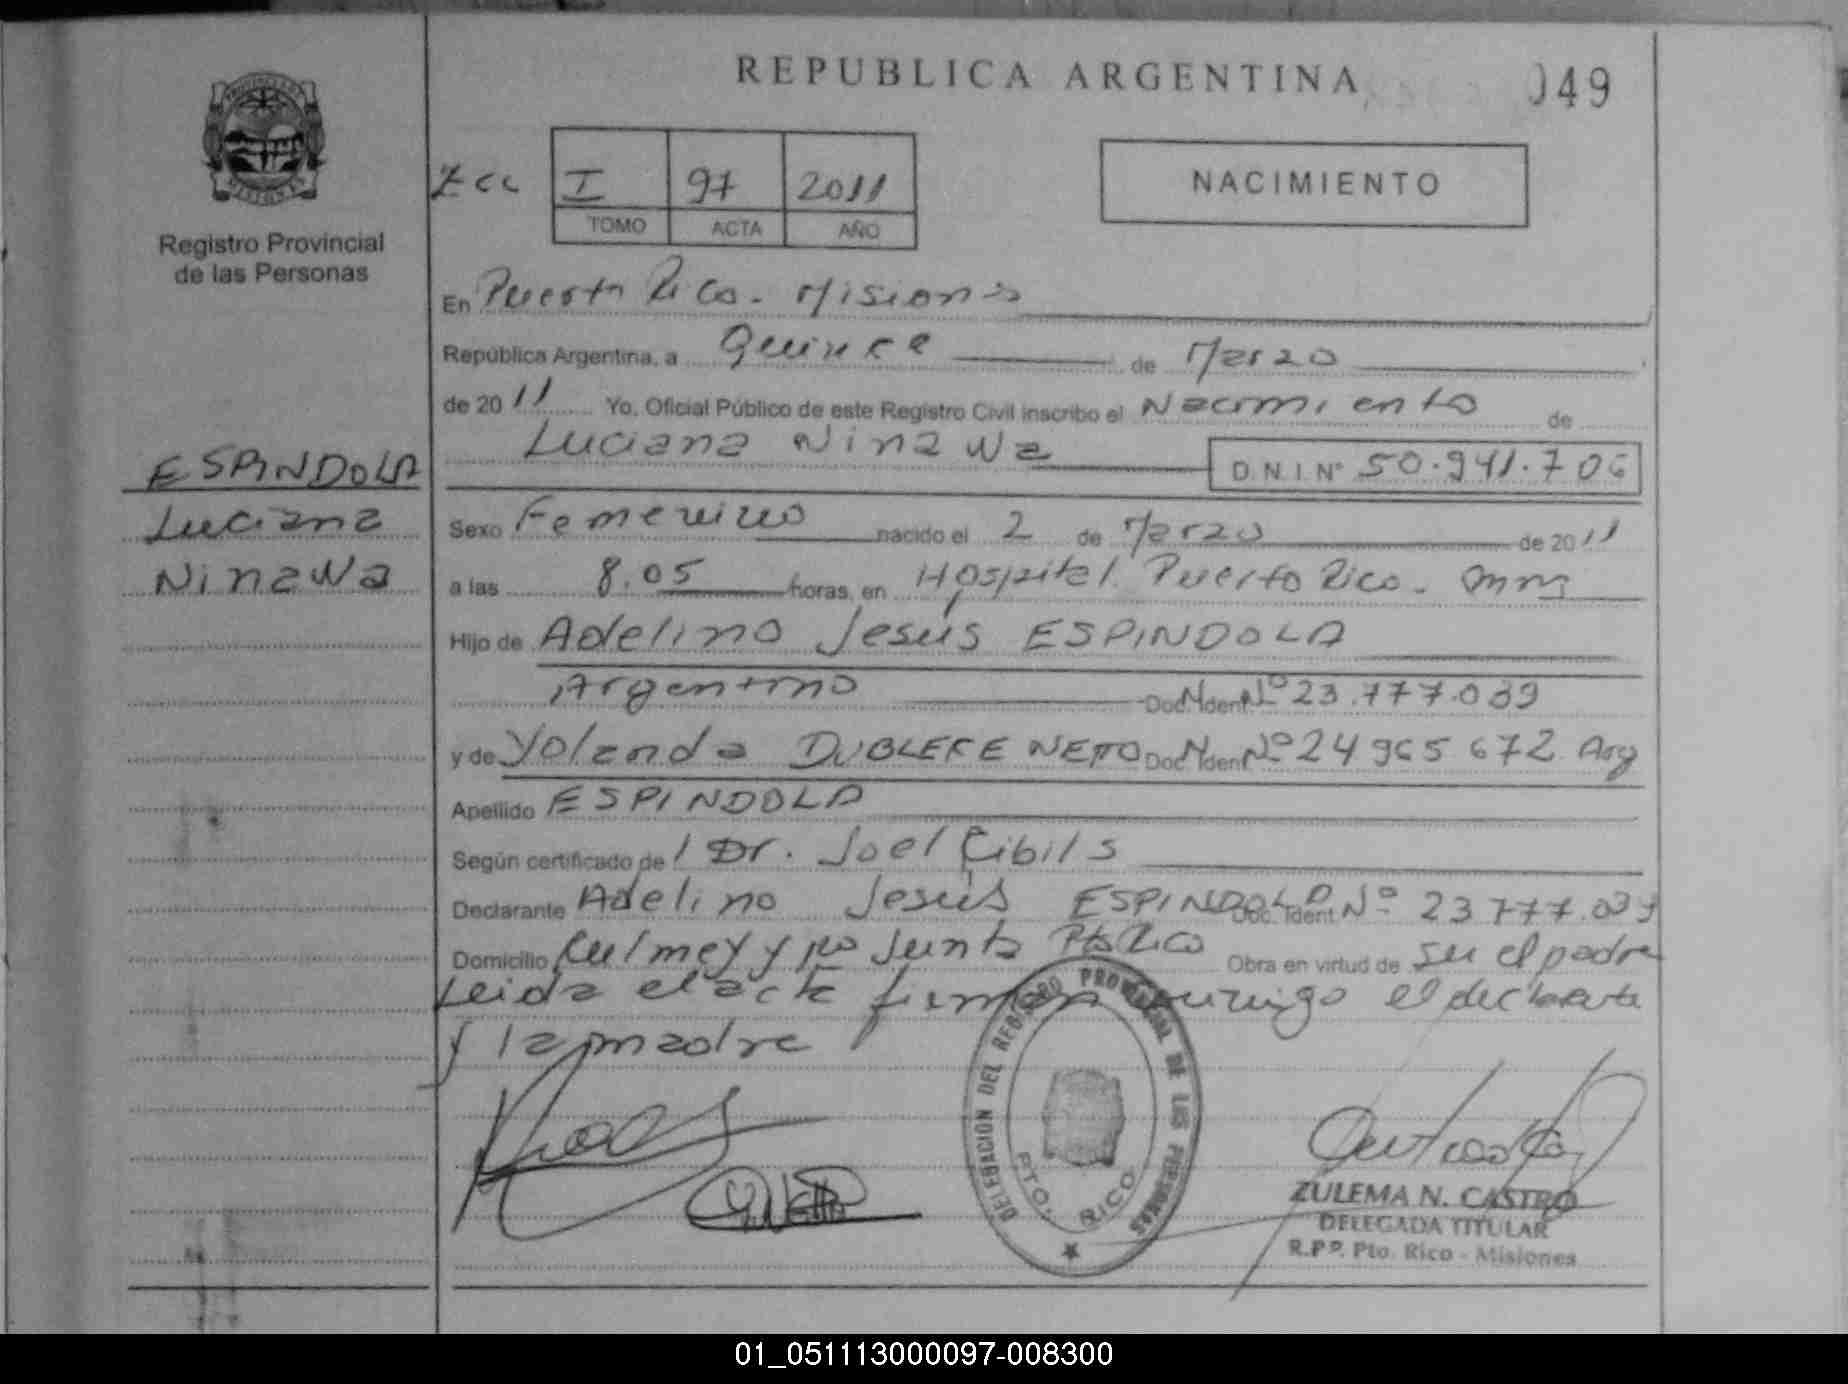 REPUBLICA ARGENTINA
049
I 97 2011
TOMO ACTA AÑO
NACIMIENTO
Registro Provincial
de las Personas
En Puerto Rico - Misiones
República Argentina, a Quince de Marzo
de 2011 Yo, Oficial Público de este Registro Civil inscribo el Nacimiento de
Luciana Ninawa D.N.I. Nº 50.941.706
ESPINDOLA
Luciana
Ninawa
Sexo Femenino nacido el 2 de Marzo de 2011
a las 8.05 horas, en Hospital Puerto Rico -
Hijo de Adelino Jesús ESPINDOLA
Argentino Doc. Ident. Nº 23.777.039
y de Yolanda NETTO Doc. Ident. Nº 24 965 672 Arg
Apellido ESPINDOLA
Según certificado de l Dr. Joel Cibils
Declarante Adelino Jesús ESPINDOLA Doc. Ident. Nº 23 777.039
Domicilio Culmey y 1ro Junta Pto Rico Obra en virtud de ser el padre
Leida el acta firman conmigo el declarante
y la madre
DELEGACION DEL REGISTRO PROVINCIAL DE LAS PERSONAS
PTO. RICO
ZULEMA N. CASTRO
DELEGADA TITULAR
R.P.P. Pto. Rico - Misiones
01_051113000097-008300